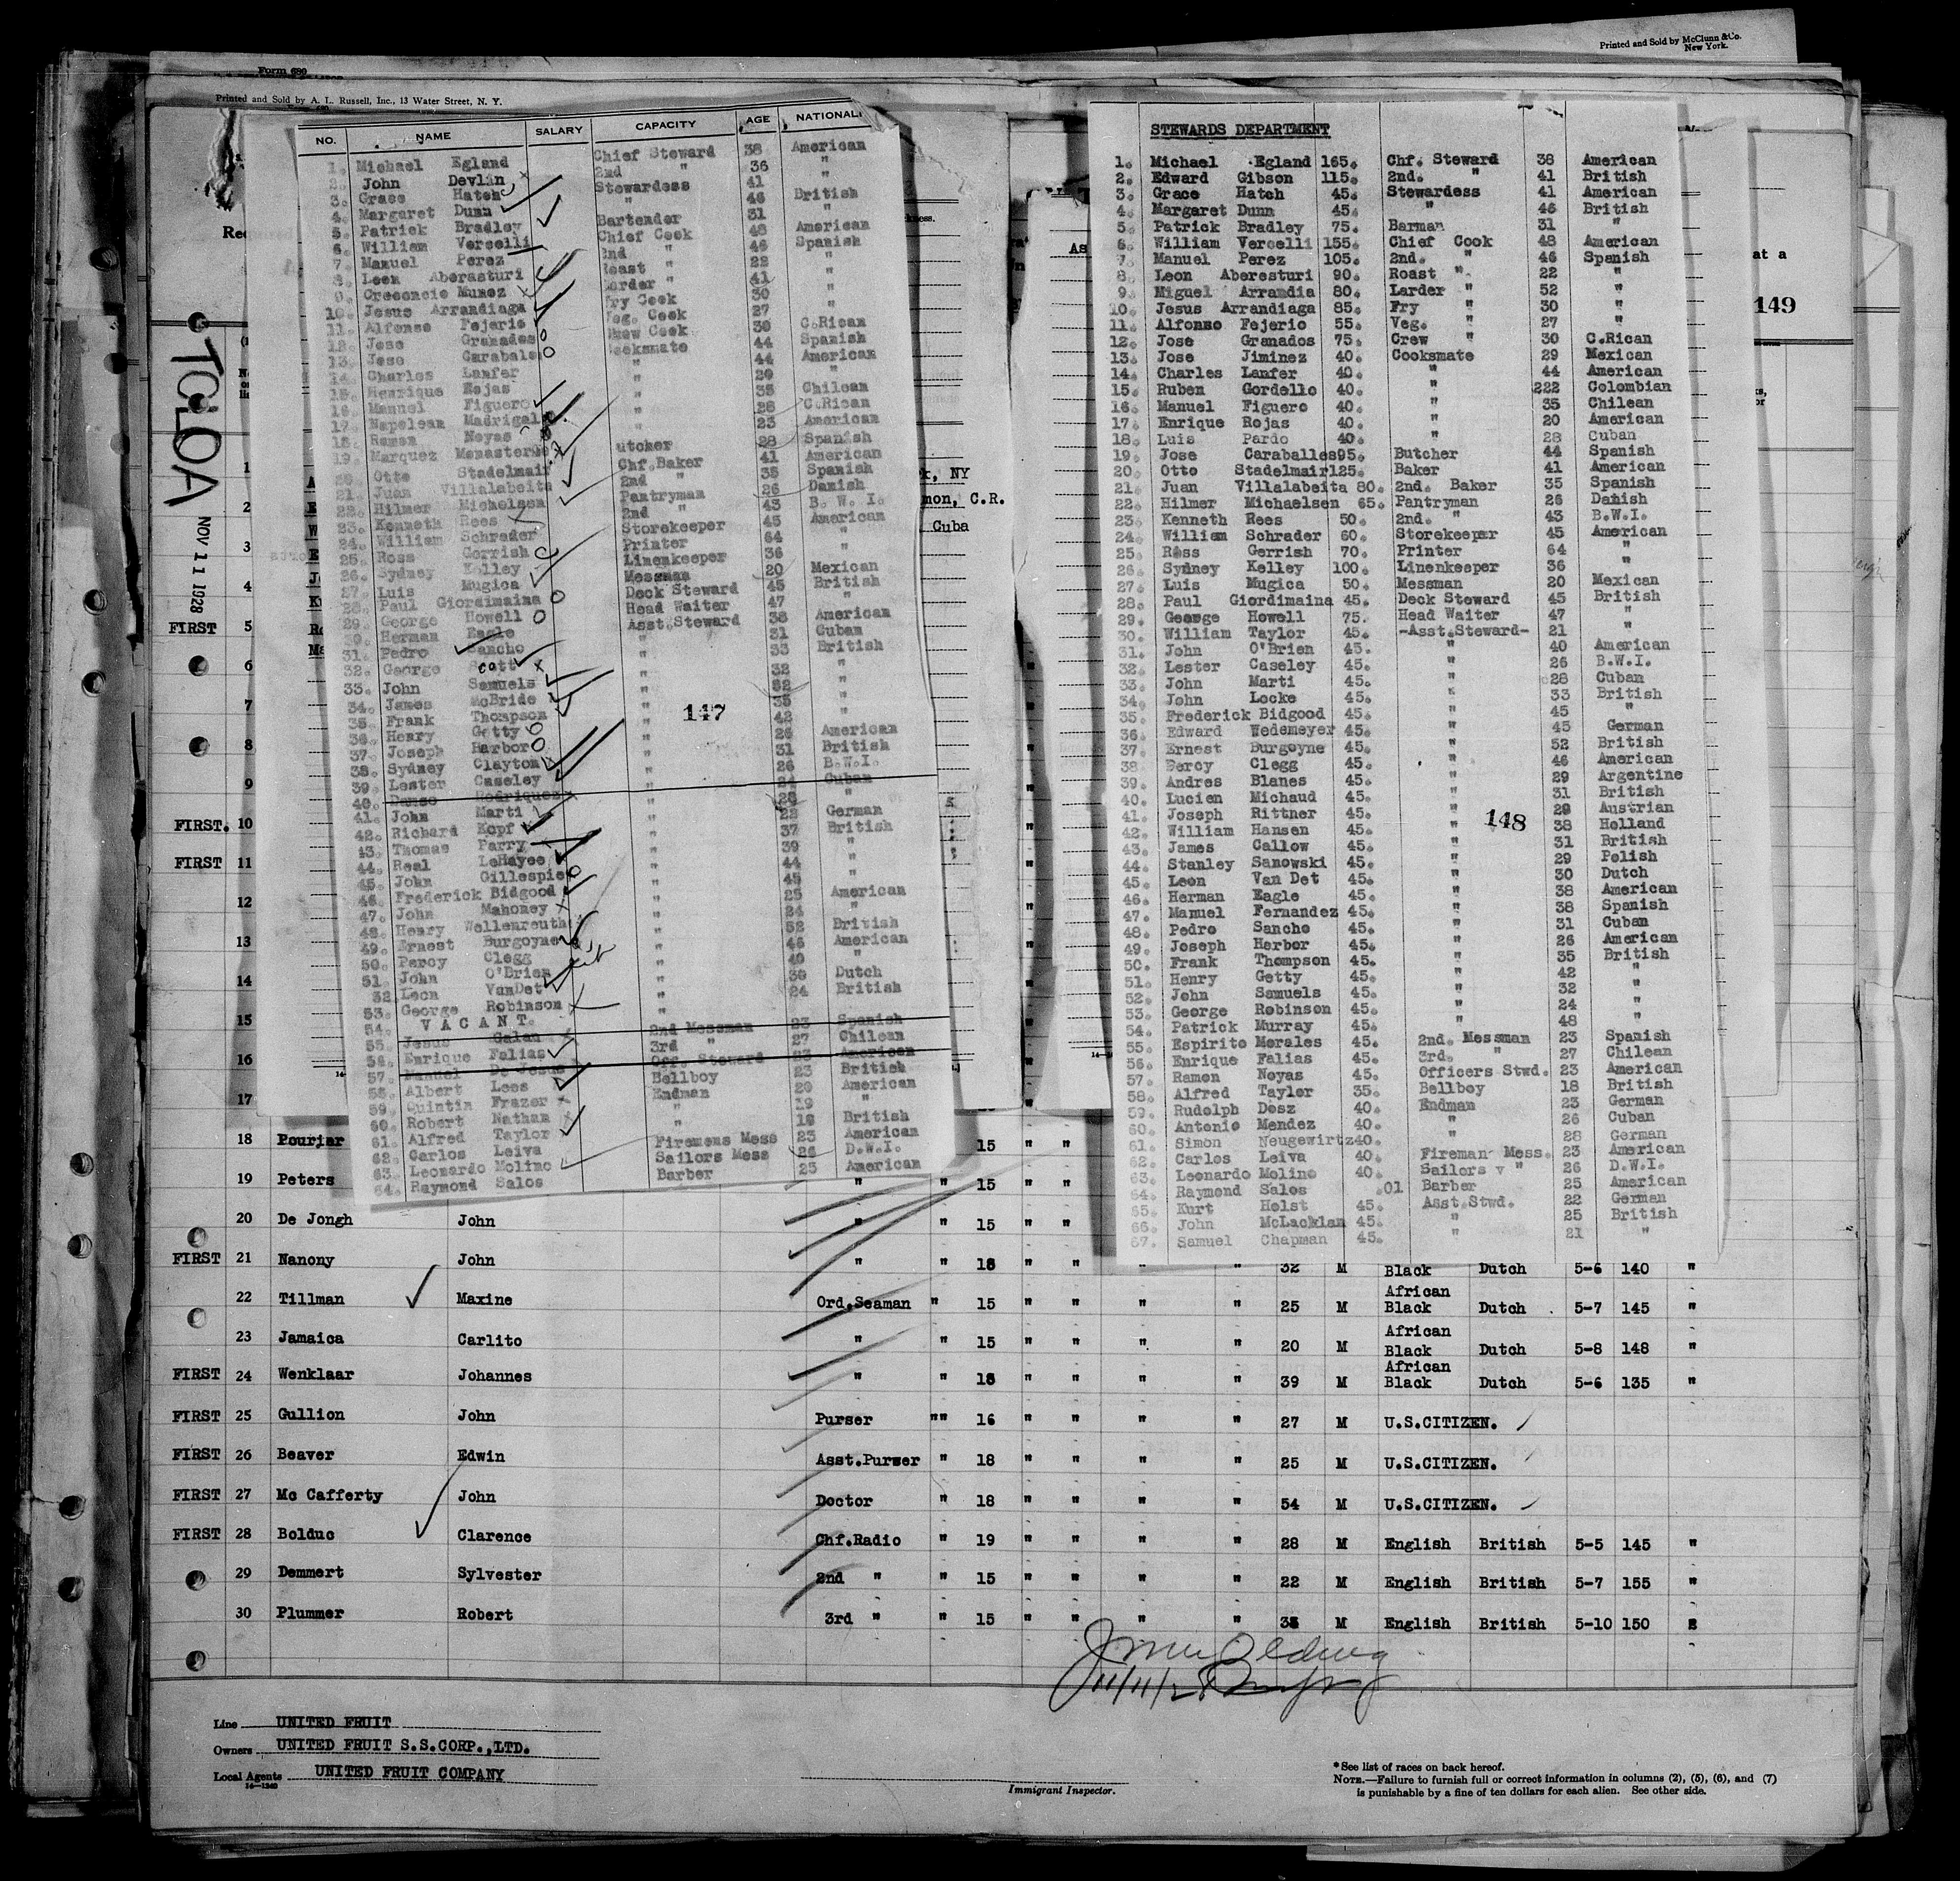 Printed and Sold by McClunn & Co.
New York.
Form 680
Printed and Sold by A. L. Russell, Inc., 13 Water Street, N. Y.
TOLOA
NOV 11 1928
NO. NAME SALARY CAPACITY AGE NATIONALI
1. Michael Egland Chief Steward 38 American
2. John Devlin 2nd " 36 "
3. Grace Hatch Stewardess 41 "
4. Margaret Dunn " 46 British
5. Patrick Bradley Bartender 31 "
6. William Vercelli Chief Cook 48 American
7. Manuel Perez 2nd " 46 Spanish
8. Leon Aberasturi Roast " 22 "
9. Crecencio Munoz Larder " 41 "
10. Jesus Arrandiaga Fry Cook 30 "
11. Alfonso Fejerio Veg. Cook 27 "
12. Jose Granados Crew Cook 30 C.Rican
13. Jose Carabale Cooksmate 44 Spanish
14. Charles Lanfer " 44 American
15. Henrique Rojas " 20 "
16. Manuel Figuero " 35 Chilean
17. Napolean Madrigal " 28 C.Rican
18. Ramon Noyas " 23 American
19. Marquez Monasterio utcher 28 Spanish
20. Otto Stadelmair Chf.Baker 41 American
21. Juan Villalabeita 2nd " 35 Spanish
22. Hilmer Michelsen Pantryman 26 Danish
23. Kenneth Rees 2nd " 43 B.W.I.
24. William Schrader Storekeeper 45 American
25. Ross Gerrish Printer 64 "
26. Sydney Kelley Linenkeeper 36 "
27. Luis Mugica Messman 20 Mexican
28. Paul Giordimaina Deck Steward 45 British
29. George Howell Head Waiter 47 "
30. Herman Eagle Asst.Steward 38 American
31. Pedro Sancho " 31 Cuban
32. George Scott " 33 British
33. John Samuels " 32 "
34. James McBride " 52 "
35. Frank Thompson " 35 "
36. Henry Getty " 42 "
37. Joseph Harbor " 26 American
38. Sydney Clayton " 31 British
39. Lester Caseley " 26 B.W.I.
40. Rodriquez " 24 Cuban
41. John Marti " 28 "
42. Richard Kopf " 22 German
43. Thomas Parry " 37 British
44. Real LeHayee " 39 "
45. John Gillespie " 44 "
46. Frederick Bidgood " 45 "
47. John Mahoney " 25 American
48. Henry Wellenreuth " 24 "
49. Ernest Burgoyne " 52 British
50. Percy Clegg " 46 American
51. John O'Brien " 40 "
52. Leon VanDet " 30 Dutch
53. George Robinson " 24 British
54. VACANT.
55. Jesus Galan 2nd Messman 23 Spanish
56. Enrique Falias 3rd " 27 Chilean
57. Manuel De Jesus Off. Steward 23 American
58. Albert Lees Bellboy 23 British
59. Quintin Frazer Endman 20 American
60. Robert Nathan " 19 "
61. Alfred Taylor " 18 British
62. Carlos Leiva Firemens Mess 23 American
63. Leonardo Molino Sailors Mess 26 D.W.I.
64. Raymond Salos Barber 25 American
147
STEWARDS DEPARTMENT
1. Michael Egland 165. Chf. Steward 38 American
2. Edward Gibson 115. 2nd. " 41 British
3. Grace Hatch 45. Stewardess 41 American
4. Margaret Dunn 45. " 46 British
5. Patrick Bradley 75. Barman 31 "
6. William Vercelli 155. Chief Cook 48 American
7. Manuel Perez 105. 2nd. " 46 Spanish
8. Leon Aberesturi 90. Roast " 22 "
9. Miguel Arrandia 80. Larder " 52 "
10. Jesus Arrandiaga 85. Fry " 30 "
11. Alfonso Fejerio 55. Veg. " 27 "
12. Jose Granados 75. Crew " 30 C.Rican
13. Jose Jiminez 40. Cooksmate 29 Mexican
14. Charles Lanfer 40. " 44 American
15. Ruben Gordello 40. " 222 Colombian
16. Manuel Figuero 40. " 35 Chilean
17. Enrique Rojas 40. " 20 American
18. Luis Pardo 40. " 28 Cuban
19. Jose Caraballes 95. Butcher 44 Spanish
20. Otto Stadelmair 125. Baker 41 American
21. Juan Villalabeita 80. 2nd. Baker 35 Spanish
22. Hilmer Michaelsen 65. Pantryman 26 Danish
23. Kenneth Rees 50. 2nd. " 43 B.W.I.
24. William Schrader 60. Storekeeper 45 American
25. Ross Gerrish 70. Printer 64 "
26. Sydney Kelley 100. Linenkeeper 36 "
27. Luis Mugica 50. Messman 20 Mexican
28. Paul Giordimaina 45. Deck Steward 45 British
29. George Howell 75. Head Waiter 47 "
30. William Taylor 45. -Asst.Steward- 21 "
31. John O'Brien 45. " 40 American
32. Lester Caseley 45. " 26 B.W.I.
33. John Marti 45. " 28 Cuban
34. John Locke 45. " 33 British
35. Frederick Bidgood 45. " 45 "
36. Edward Wedemeyer 45. " 45 German
37. Ernest Burgoyne 45. " 52 British
38. Percy Clegg 45. " 46 American
39. Andres Blanes 45. " 29 Argentine
40. Lucien Michaud 45. " 31 British
41. Joseph Rittner 45. " 29 Austrian
42. William Hansen 45. " 38 Holland
43. James Callow 45. " 31 British
44. Stanley Sanowski 45. " 29 Polish
45. Leon Van Det 45. " 30 Dutch
46. Herman Eagle 45. " 38 American
47. Manuel Fernandez 45. " 38 Spanish
48. Pedro Sancho 45. " 31 Cuban
49. Joseph Herbor 45. " 26 American
50. Frank Thompson 45. " 35 British
51. Henry Getty 45. " 42 "
52. John Samuels 45. " 32 "
53. George Robinson 45. " 24 "
54. Patrick Murray 45. " 48 "
55. Espirito Morales 45. 2nd. Messman 23 Spanish
56. Enrique Falias 45. 3rd. " 27 Chilean
57. Ramon Noyas 45. Officers Stwd. 23 American
58. Alfred Taylor 35. Bellboy 18 British
59. Rudolph Desz 40. Endman 23 German
60. Antonio Mendez 40. " 26 Cuban
61. Simon Neugewirtz 40. " 28 German
62. Carlos Leiva 40. Fireman Mess. 23 American
63. Leonardo Molino 40. Sailors " 26 D.W.I.
64. Raymond Salos .01 Barber 25 American
65. Kurt Holst 45. Asst.Stwd. 22 German
66. John McLacklan 45. " 25 British
67. Samuel Chapman 45. " 21 "
148
at a
149
k, NY
mon, C.R.
Cuba
1
2
3
4
FIRST 5
6
7
8
9
FIRST. 10
FIRST 11
12
13
14
15
16
17
18 Pourier 15 " "
19 Peters " " 15 " "
20 De Jongh John " " 15 " "
FIRST 21 Nanony John " " 18 " " " " 32 M Black Dutch 5-6 140 "
22 Tillman Maxine Ord.Seaman " 15 " " " " 25 M African Black Dutch 5-7 145 "
23 Jamaica Carlito " " 15 " " " " 20 M African Black Dutch 5-8 148 "
FIRST 24 Wenklaar Johannes " " 18 " " " " 39 M African Black Dutch 5-6 135 "
FIRST 25 Gullion John Purser "" 16 " " " " 27 M U.S.CITIZEN.
FIRST 26 Beaver Edwin Asst.Purser " 18 " " " " 25 M U.S.CITIZEN.
FIRST 27 Mc Cafferty John Doctor " 18 " " " " 54 M U.S.CITIZEN.
FIRST 28 Bolduc Clarence Chf.Radio " 19 " " " " 28 M English British 5-5 145 "
29 Demmert Sylvester 2nd " " 15 " " " " 22 M English British 5-7 155 "
30 Plummer Robert 3rd " " 15 " " " " M English British 5-10 150
11/11/28
Line UNITED FRUIT
Owners UNITED FRUIT S.S.CORP.,LTD.
Local Agents UNITED FRUIT COMPANY
14-1240
Immigrant Inspector.
*See list of races on back hereof.
NOTE.—Failure to furnish full or correct information in columns (2), (5), (6), and (7)
is punishable by a fine of ten dollars for each alien. See other side.